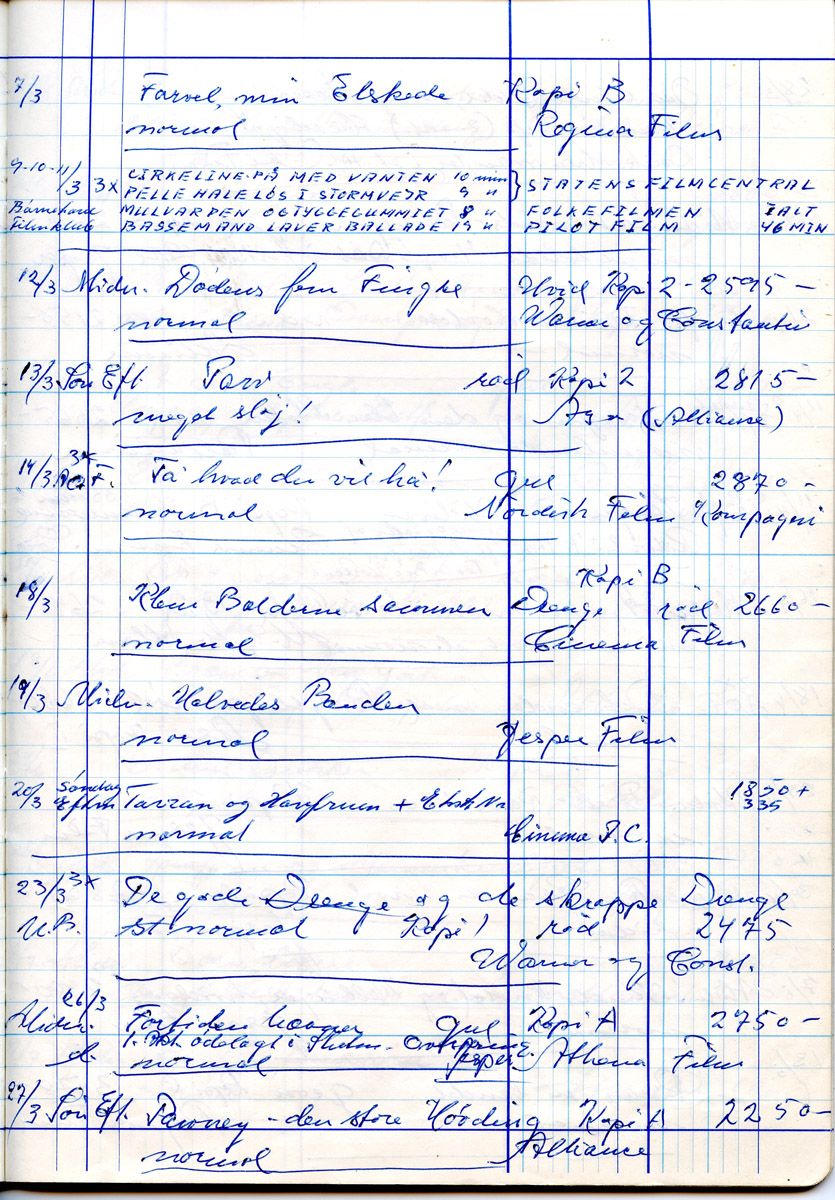 7/3 Farvel, min Elskede Kopi B
normal Regina Film
9-10-11/3 3x CIRKELINE PÅ MED VANTEN 10 min } STATENS FILMCENTRAL
PELLE HALELØS I STORMVEJR 9 "
Børnehave MULVARPEN OG TYGGEGUMMIET 8 " FOLKEFILMEN IALT
Filmklub BASSEMAND LAVER BALLADE 19 " PILOT FILM 46 MIN
12/3 Midn. Dødens fem Fingre Hvid Kopi 2 - 2595 -
normal Warner og Constantin
13/3 Søn Eft. rød Kopi 2 2815 -
meget sløj! (Alliance)
14/3 3x F. Tå hvad du vil ha! gul 2870 -
normal Nordisk Film Kompagni
Kopi B
18/3 Klem Bolderne sammen Drenge rød 2660 -
normal Cinema Film
19/3 Midn. Helvedes Banden
normal Jesper Film
20/3 Søndag Eftm Tarzan og Havfruen + 1850 +
335
normal Cinema F.C.
23/3 3x De gode Drenge og de skrappe Drenge
U.B. st normal Kopi 1 rød 2475
Warner og Const.
26/3
Midn. Forbiden gul Kopi A 2750 -
1. Akt ødelagt i
normal Athena Film
27/3 Søn Eft. Pawney - den store Høvding Kopi A 2250 -
normal Alliance